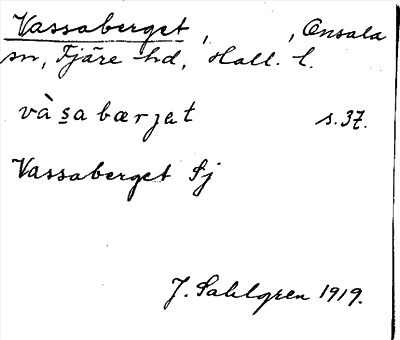 Vassaberget, , Onsala
sn, Fjäre hd, Hall. l.
và s̱a bærjat s. 37.
Vassaberget Sj
J. Sahlgren 1919.